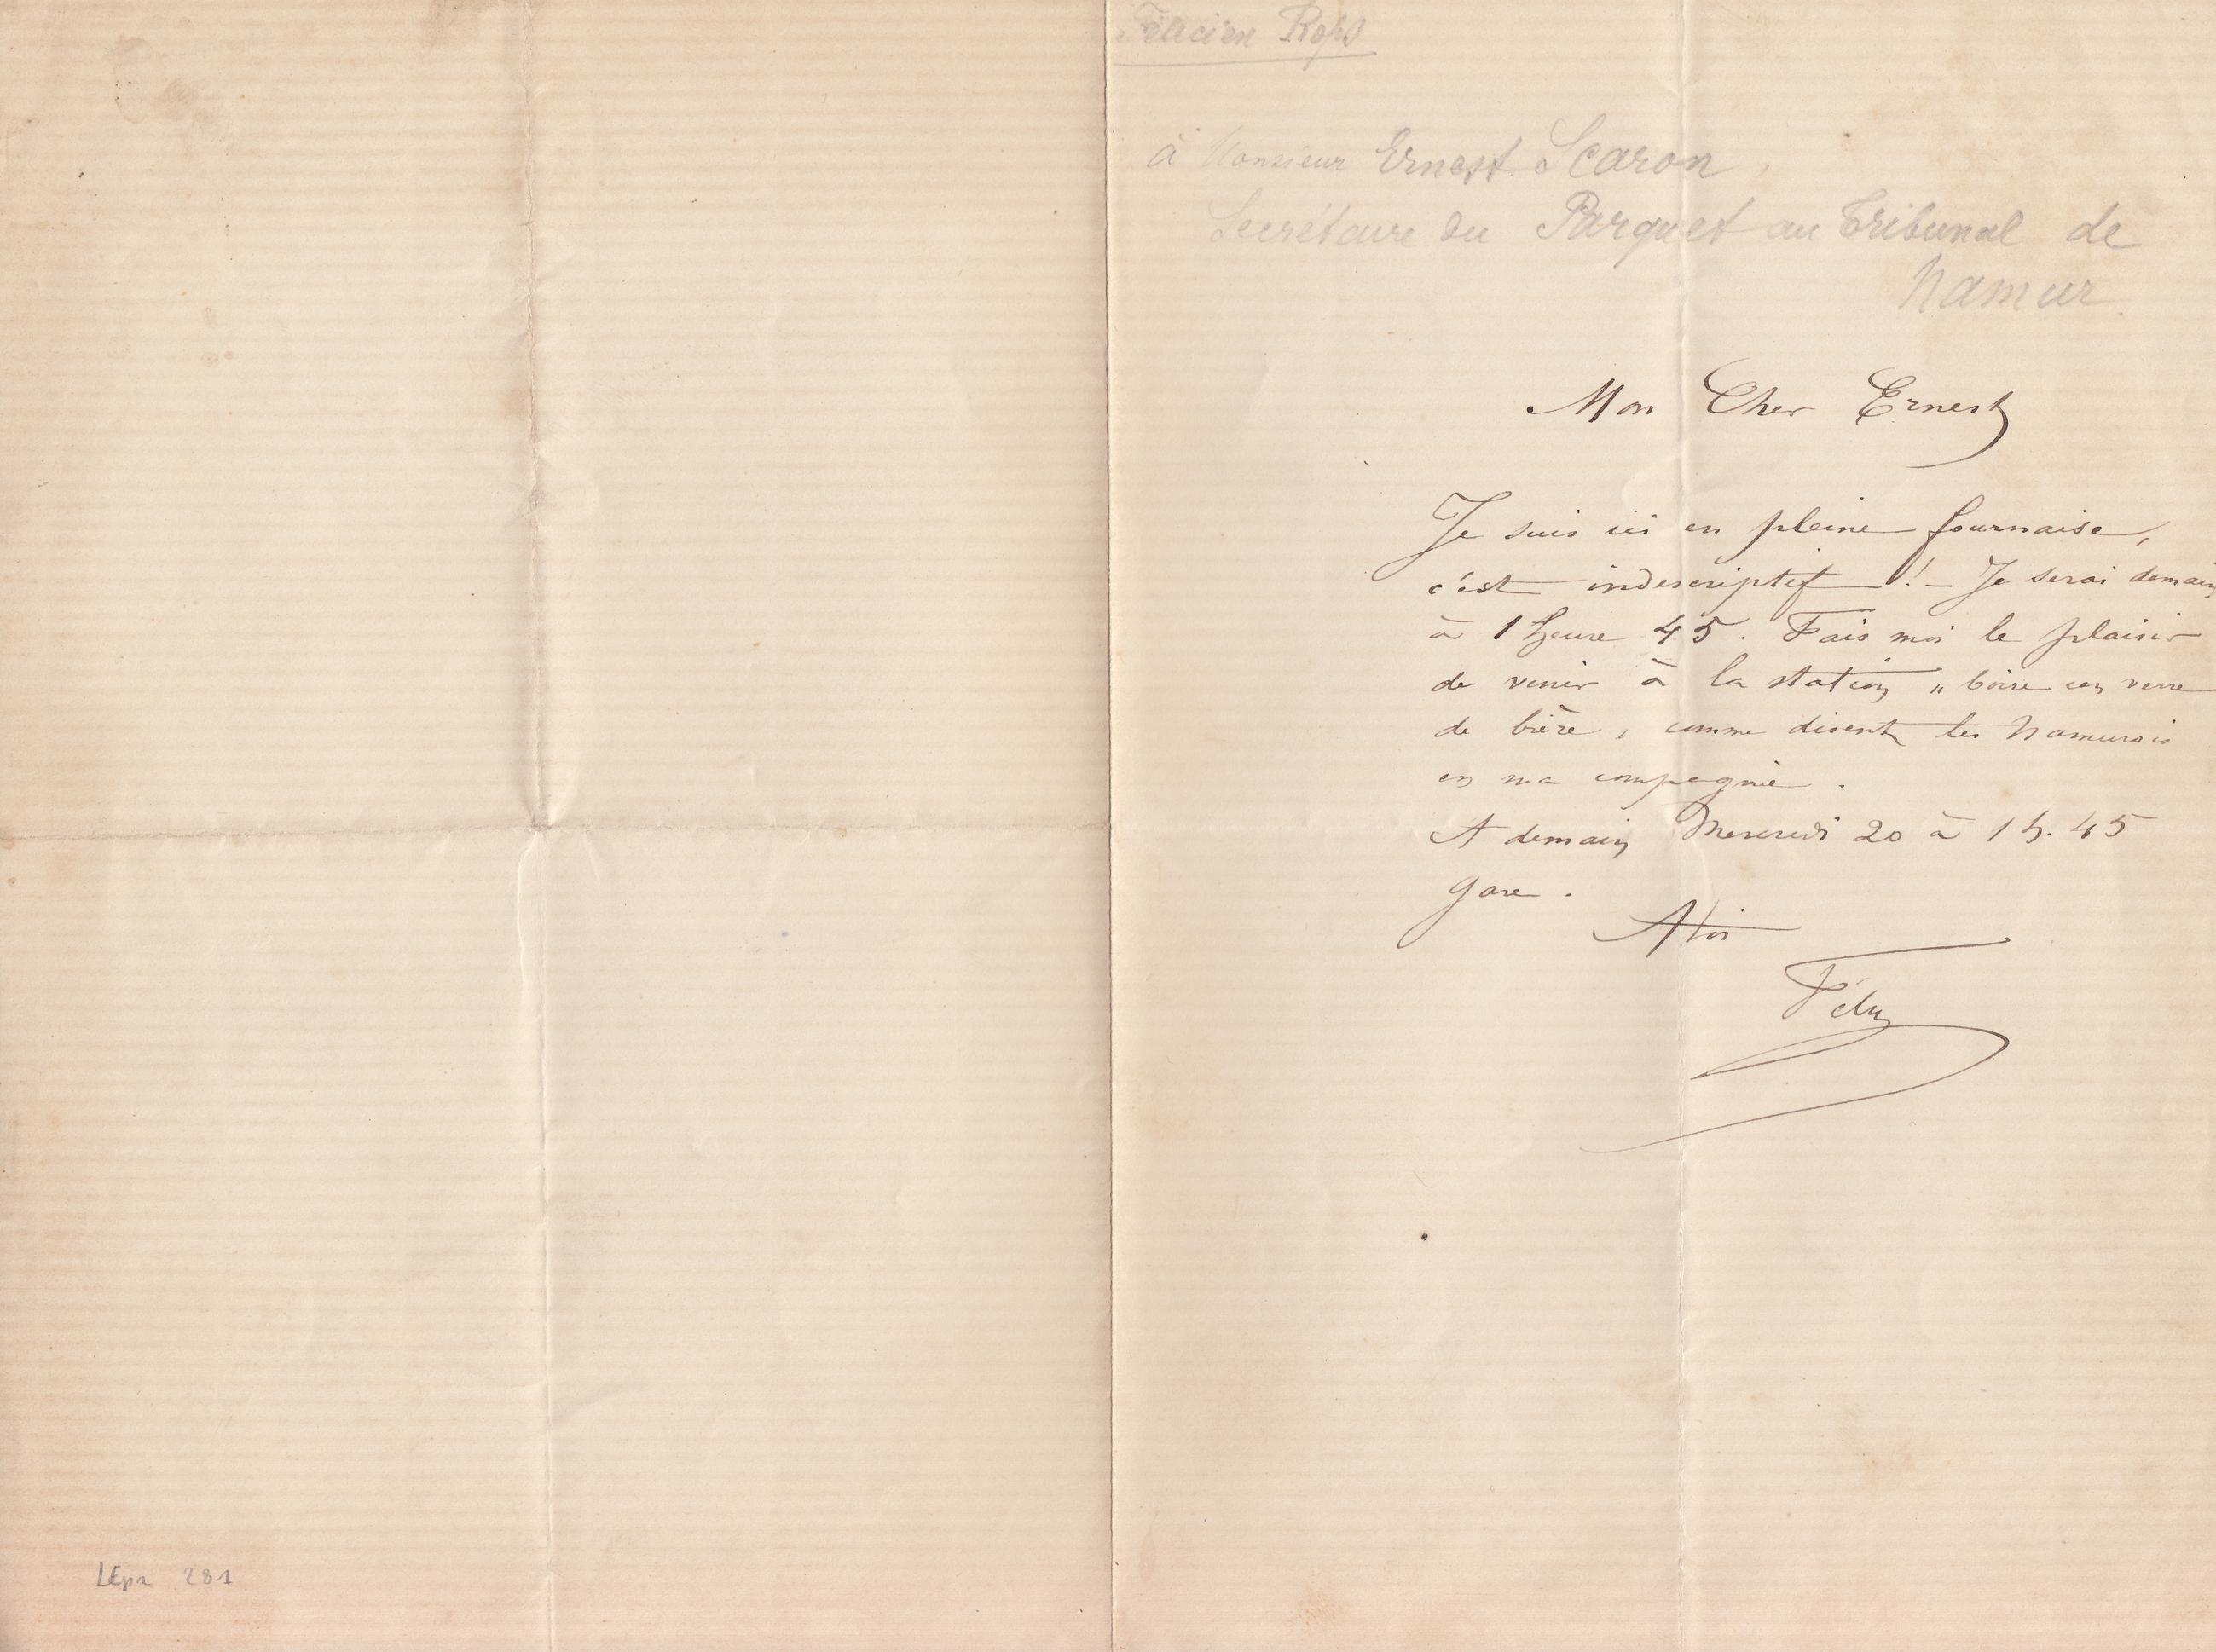 Félicien Rops
à Monsieur Ernest Scaron,
Secrétaire du Parquet au Tribunal de
Namur
Mon Cher Ernest
Je suis ici en pleine fournaise,
c'est indescriptif ! – Je serai demain
à 1 heure 45. Fais moi le plaisir
de venir à la station „ boire un verre
de bière, comme disent les Namurois
en ma compagnie.
A demain Mercredi 20 à 1 h. 45
gare.
A toi
Fély
LEpr 281